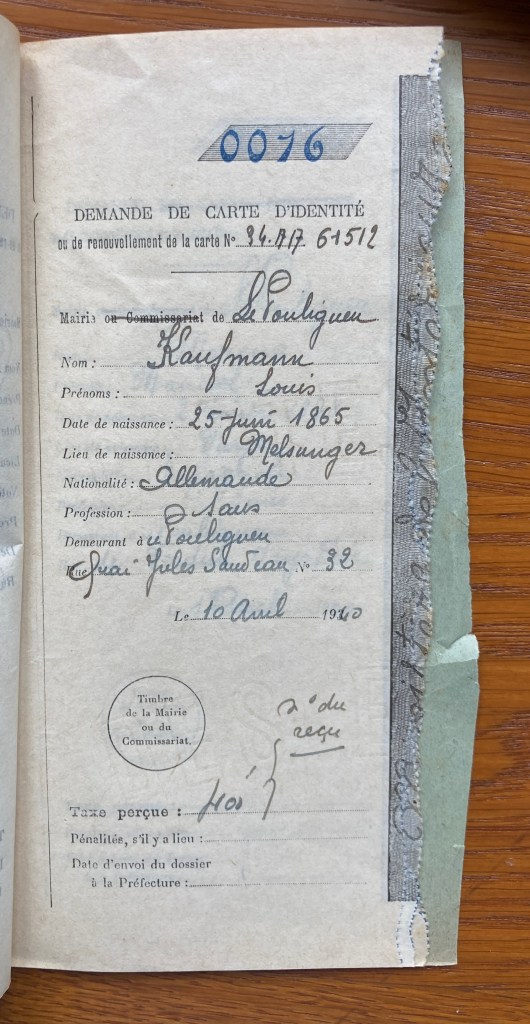 0076
DEMANDE DE CARTE D'IDENTITÉ
ou de renouvellement de la carte N° 34.AA7 61512
Mairie ou Commissariat de Le Pouliguen
Nom : Kaufmann
Prénoms : Louis
Date de naissance : 25 Juin 1865
Lieu de naissance : Melsunger
Nationalité : Allemande
Profession : Sans
Demeurant à Le Pouliguen
Quai Jules Sandeau N° 32
Le 10 Avril 1940
Timbre
de la Mairie
ou du
Commissariat.
n° du
reçu
Taxe perçue : 400
Pénalités, s'il y a lieu :
Date d'envoi du dossier
à la Préfecture :